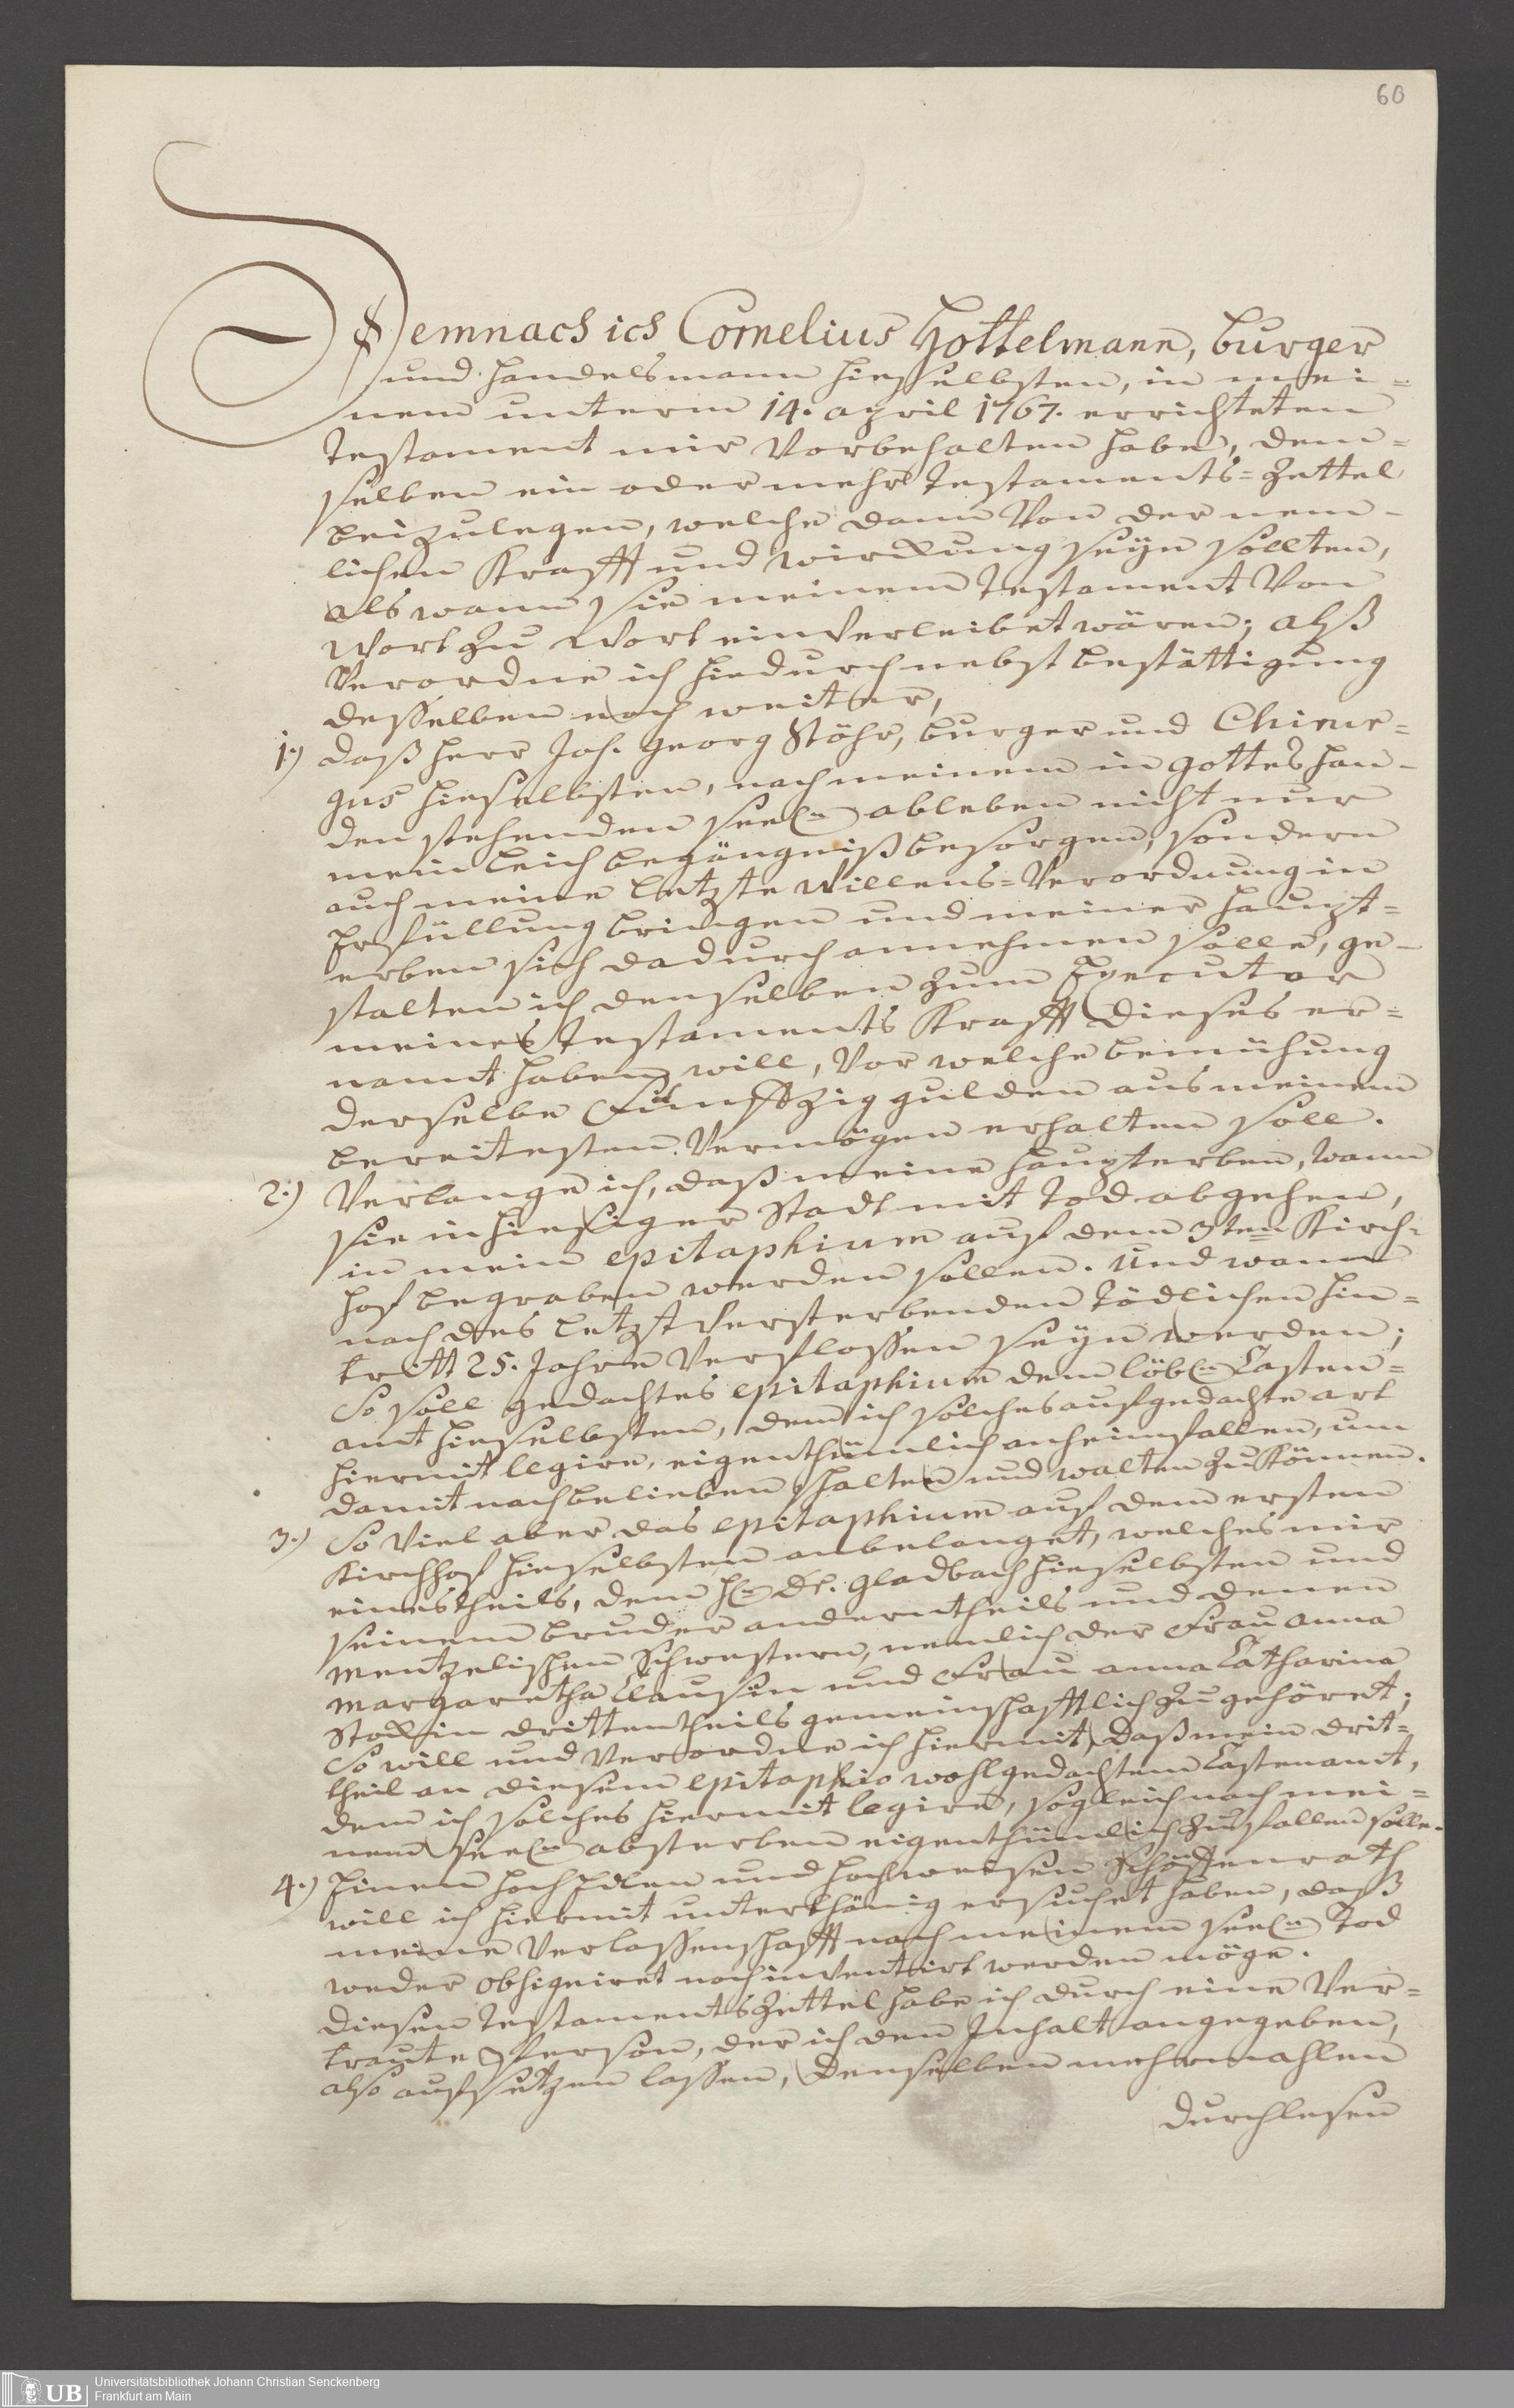 60
Demnach ich Cornelius Hottelmann, burger
und handelsmann hieselbsten, in mei=
nem unterm 14. april 1767. errichteten
Testament mir Vorbehalten habe, dem=
selben ein oder mehr Testaments=Zettel
beizulegen, welche dann Von der nem-
lichen Krafft und wirckung seyn sollten,
als wann sie meinem Testament Von
Wort zu Wort einverleibet wären; alß
Verordne ich hiedurch nebst bestättigung
desselben noch weiter,
1.) Daß Herr Joh. Georg Stöhr, burger und Chirur=
gus hieselbsten, nach meinem in Gottes Han-
den stehenden seel. ableben nicht nur
mein Leich begängniß besorgen, sondern
auch meine letzte Willens=Verordnung in
Erfüllung bringen und meiner Haupt=
erben sich dadurch annehmen solle, ge-
stalten ich denselben zum Executor
meines Testaments Krafft dieses er=
nannt haben will, Vor welche bemühung
derselbe Funffzig gulden aus meinem
bereitesten Vermögen erhalten soll.
2.) Verlange ich, daß meine Haupterben, wann
sie in hiesiger Stadt mit Tod abgehen,
in mein epitaphium auf dem 3ten Kirch=
hof begraben werden sollen. Und wann
nach des letzt Versterbenden tödlichen Hin=
tritt 25. Jahre Verflossen seyn werden;
So soll gedachtes epitaphium dem löbl. Casten=
amt hieselbsten, dem ich solches auf gedachte art
hiermit legire, eigenthümlich anheimfallen, um
damit nach belieben schalten und walten zu können.
3.) So Viel aber das epitaphium auf dem ersten
Kirchhof hieselbsten anbelanget, welches mir
einestheils, dem H. Dr. Gladbach hieselbsten und
seinem bruder anderntheils und denen
Mentzelischen Schwestern, nemlich der Frau Anna
Margaretha Clausin und Frau Anna Catharina
Stockin drittentheils gemeinschafftlich zugehöret;
So will und Verordne ich hiermit, daß mein drit=
theil an diesem epitaphio wohlgedachtem Castenamt,
dem ich solches hiermit legire, sogleich nach mei=
nem seel. absterben eigenthümlich zufallen solle.
4.) Einen HochEdlen und Hochweisen Schöffenrath
will ich hiermit unterthänig ersuchet haben, daß
meine Verlassenschafft nach meinem seel. Tod
weder obsigniret noch inventirt werden möge.
Diesen Testaments Zettel habe ich durch eine Ver=
traute Person, der ich den Inhalt angegeben,
also aufsetzen lassen, denselben mehrmahlen
durchlesen
UB
Universitätsbibliothek Johann Christian Senckenberg
Frankfurt am Main